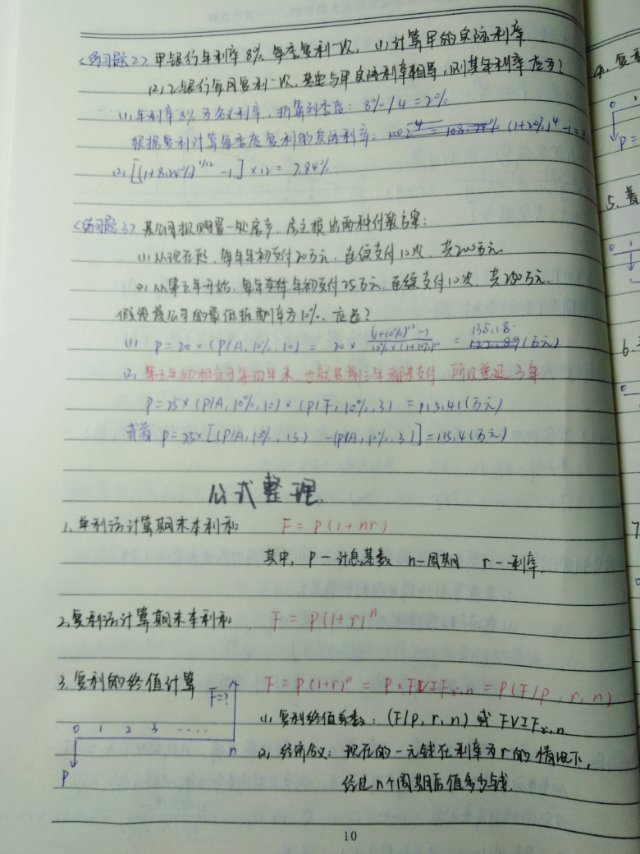 <练习题2> 甲银行年利率8%,每季复利一次, (1)计算甲的实际利率
(2) 乙银行每月复利一次,若要与甲实际利率相等,则其年利率应为?
(1) 年利率8%为名义利率,折算到季度: 8%/4=2%
根据复利计算每季度复利的实际利率: (1+2%)^4 - 1 =
(2) [(1+8.24%)^{1/12} - 1] ×12 = 7.94%
<练习题3> 某公司拟购置一处房产,房主提出两种付款方案:
(1) 从现在起,每年年初支付20万元,连续支付10次,共200万元.
(2) 从第五年开始,每年年初支付25万元,连续支付10次,共250万元.
假设该公司的最低报酬率为10%,应选?
(1) P=20×(P/A,10%,10) = 20× \frac{(1+10%)^{10}-1}{10%×(1+10%)^{10}} = 135.18 (万元)
(2) 第五年初相当于第四年末,也就是前三年都未支付,所以递延3年
P=25×(P/A,10%,10)×(P/F,10%,3) = 113.41(万元)
或者 P=25×[(P/A,10%,13) -(P/A,10%,3)]=115.4(万元)
公式整理
1.单利法计算期末本利和: F=P(1+nr)
其中, P-计息基数 n-周期 r-利率
2.复利法计算期末本利和 F=P(1+r)^n
3.复利的终值计算 F=P(1+r)^n = P×FVIF_{r,n} = P(F/P, r, n)
F=?
(1) 复利终值系数: (F/P, r, n) 或 FVIF_{r,n}
0 1 2 3 ..... n
(2) 经济含义: 现在的一元钱在利率为r的情况下,
P
经过n个周期后值多少钱.
10